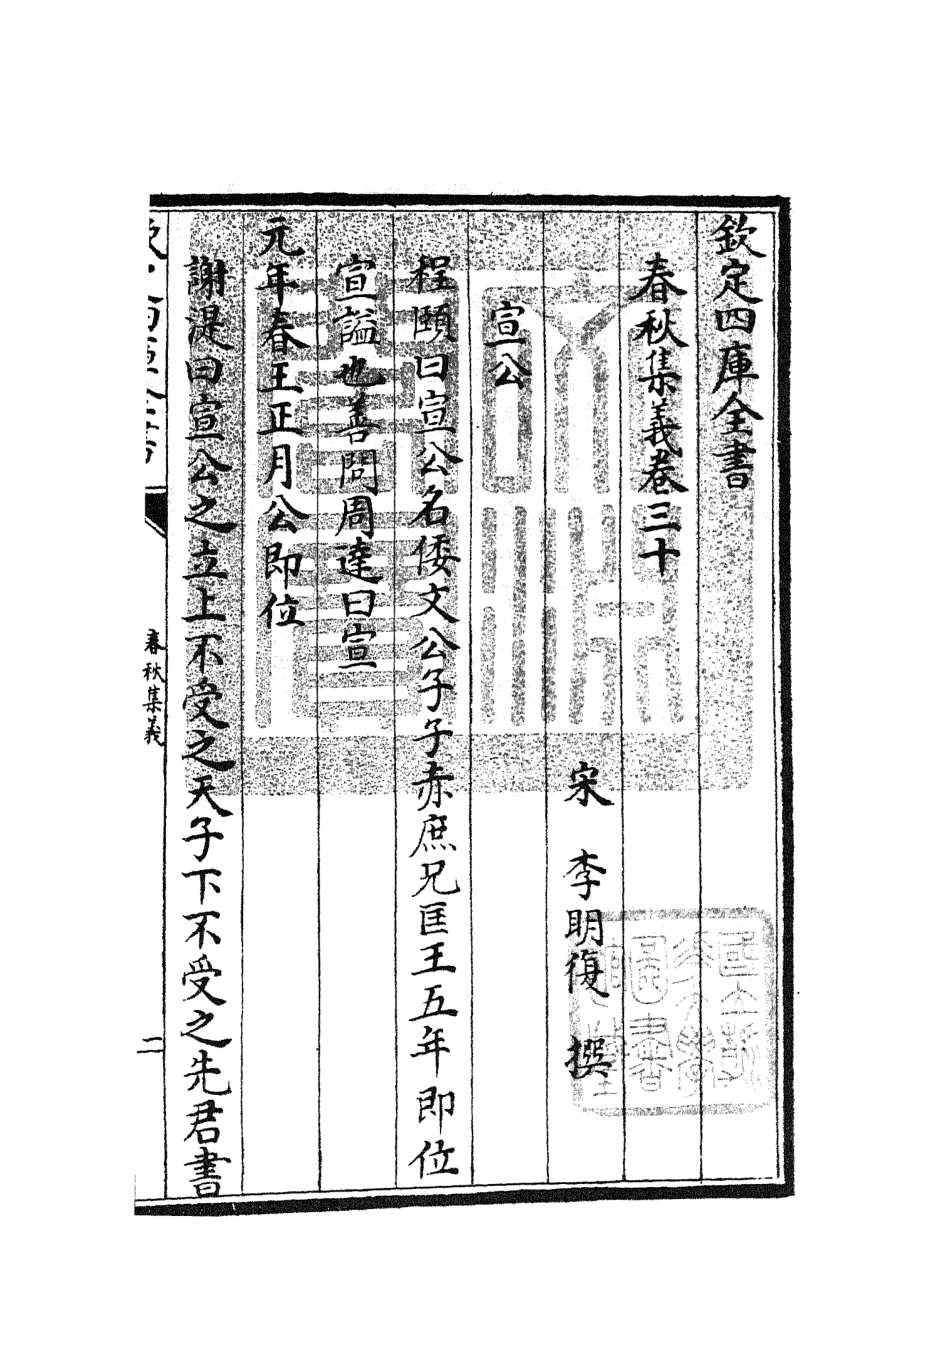 欽定四庫全書
春秋集義卷三十
宋　李明復　撰
宣公
程頤曰宣公名倭文公子子赤庶兄匡王五年即位
宣謚也善問周達曰宣
元年春王正月公即位
謝湜曰宣公之立上不受之天子下不受之先君書
春秋集義
二